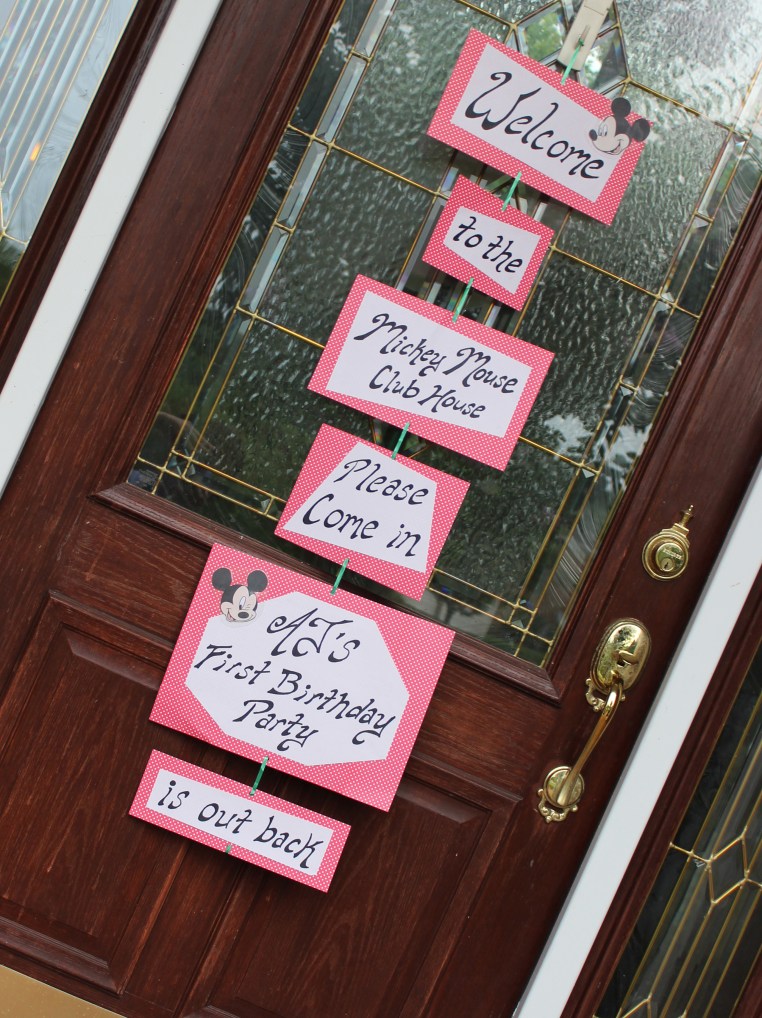 Welcome
to the
Mickey Mouse
Club House
Please
Come in
AJ's
First Birthday
Party
is out back